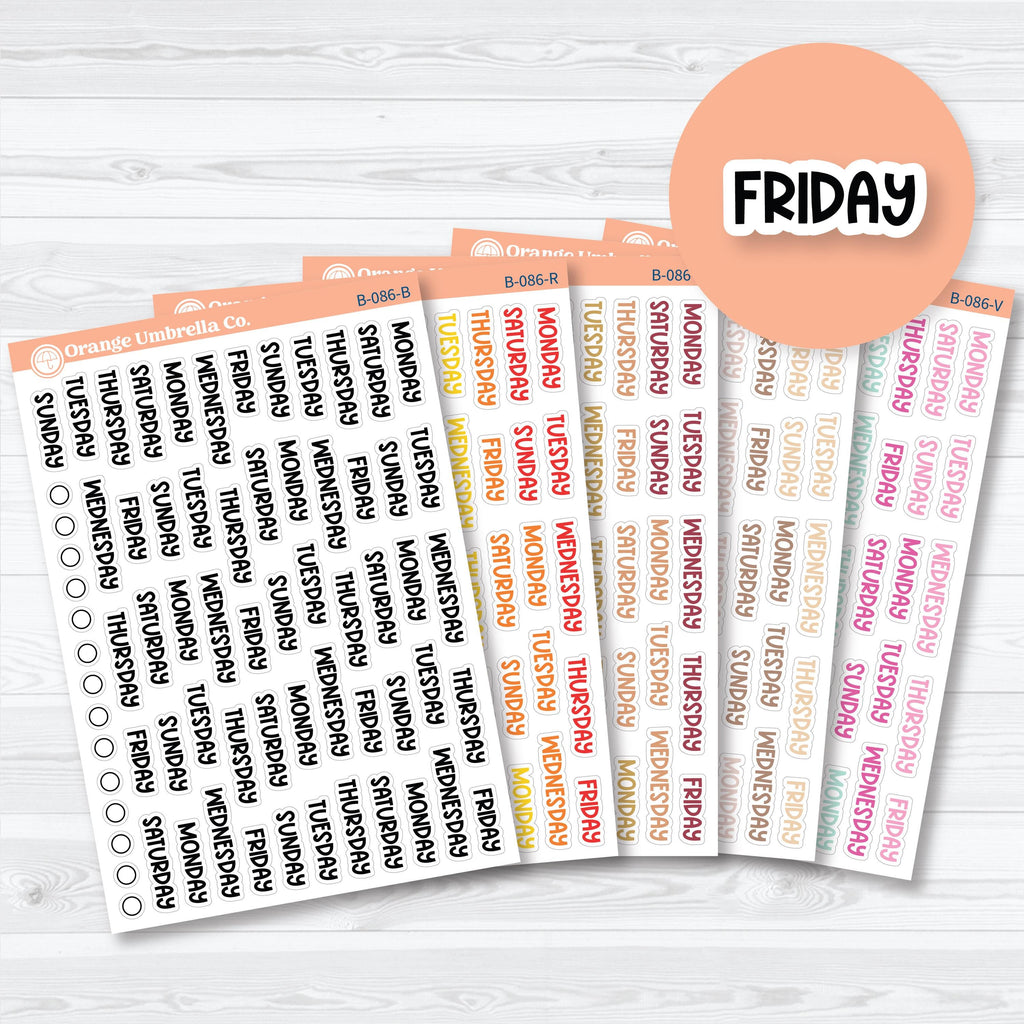 FRIDAY
Orange Umbrella Co.
B-086-B
MONDAY TUESDAY WEDNESDAY THURSDAY FRIDAY
SATURDAY SUNDAY MONDAY TUESDAY WEDNESDAY
THURSDAY FRIDAY SATURDAY SUNDAY MONDAY
TUESDAY WEDNESDAY THURSDAY FRIDAY SATURDAY
SUNDAY MONDAY TUESDAY WEDNESDAY THURSDAY
FRIDAY SATURDAY SUNDAY MONDAY TUESDAY
WEDNESDAY THURSDAY FRIDAY SATURDAY SUNDAY
MONDAY TUESDAY WEDNESDAY THURSDAY FRIDAY
SATURDAY SUNDAY MONDAY TUESDAY WEDNESDAY
THURSDAY FRIDAY SATURDAY SUNDAY MONDAY
TUESDAY WEDNESDAY THURSDAY FRIDAY SATURDAY
SUNDAY
B-086-R
MONDAY TUESDAY WEDNESDAY THURSDAY FRIDAY
SATURDAY SUNDAY MONDAY TUESDAY WEDNESDAY
THURSDAY FRIDAY SATURDAY SUNDAY MONDAY
TUESDAY WEDNESDAY
Orange Umbrella
B-086
MONDAY TUESDAY WEDNESDAY THURSDAY FRIDAY
SATURDAY SUNDAY MONDAY TUESDAY WEDNESDAY
THURSDAY FRIDAY SATURDAY SUNDAY MONDAY
TUESDAY WEDNESDAY
Orange Umbrella
TUESDAY WEDNESDAY THURSDAY FRIDAY
SUNDAY MONDAY TUESDAY WEDNESDAY
THURSDAY FRIDAY SATURDAY SUNDAY MONDAY
WEDNESDAY
B-086-V
MONDAY TUESDAY WEDNESDAY THURSDAY FRIDAY
SATURDAY SUNDAY MONDAY TUESDAY WEDNESDAY
THURSDAY FRIDAY SATURDAY SUNDAY MONDAY
WEDNESDAY